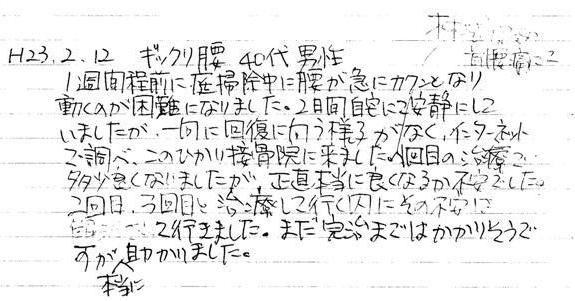 H23.2.12 ギックリ腰 40代男性
1週間程前に庭掃除中に腰が急にカクンとなり
動くのが困難になりました。2日間自宅にて安静にして
いましたが、一向に回復に向う様子がなく、インターネット
で調べ、このひかり接骨院に来ました。1回目の治療で
多少良くなりましたが、正直本当に良くなるか不安でした。
2回目、3回目と治療して行く内にその不安は
て行きました。まだ完治まではかかりそうで
すが本当に助かりました。